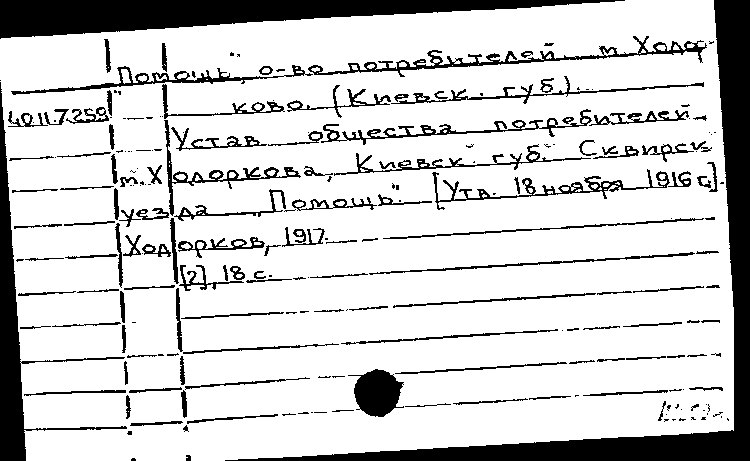 „Помощь", о-во потребителей м. Ходор-
ково. (Киевск. губ.).
40.11.7.259
Устав общества потребителей
м. Ходоркова, Киевск. губ. Сквирск.
уезда „Помощь". [Утв. 18 ноября 1916 г.].
Ходорков, 1917.
[2], 18 с.